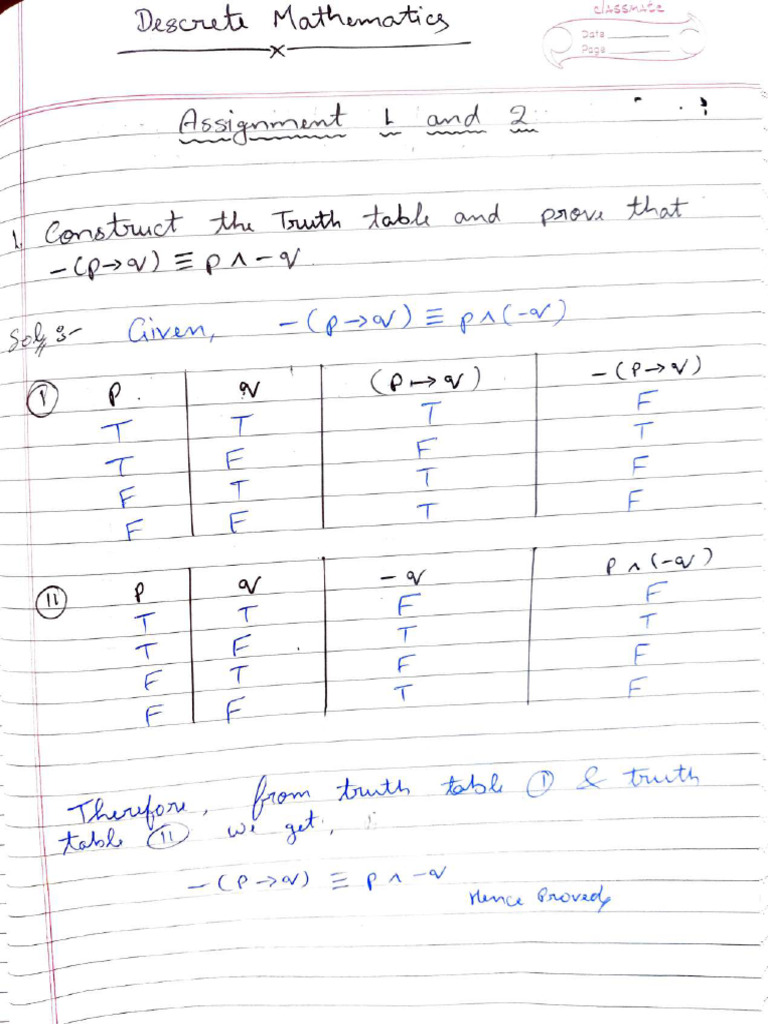 Descrete Mathematics
classmate
Date
Page
Assignment 1 and 2
1. Construct the Truth table and prove that
-(p→q) ≡ p ∧ -q
Solⁿ:- Given, -(p→q) ≡ p∧(-q)
I p q (p↦q) -(p→q)
T T T F
T F F T
F T T F
F F T F
II p q -q p∧(-q)
T T F F
T F T T
F T F F
F F T F
Therefore, from truth table I & truth
table II we get,
-(p→q) ≡ p ∧ -q
Hence Proved